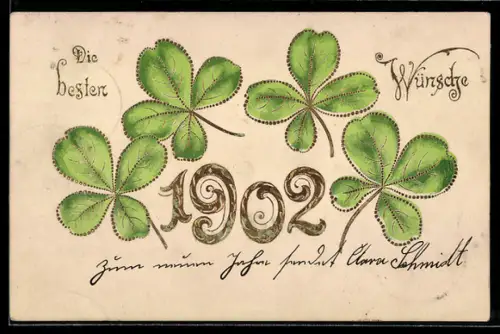 Die
besten
Wünsche
1902
zum neuen Jahre sendet Clara Schmidt